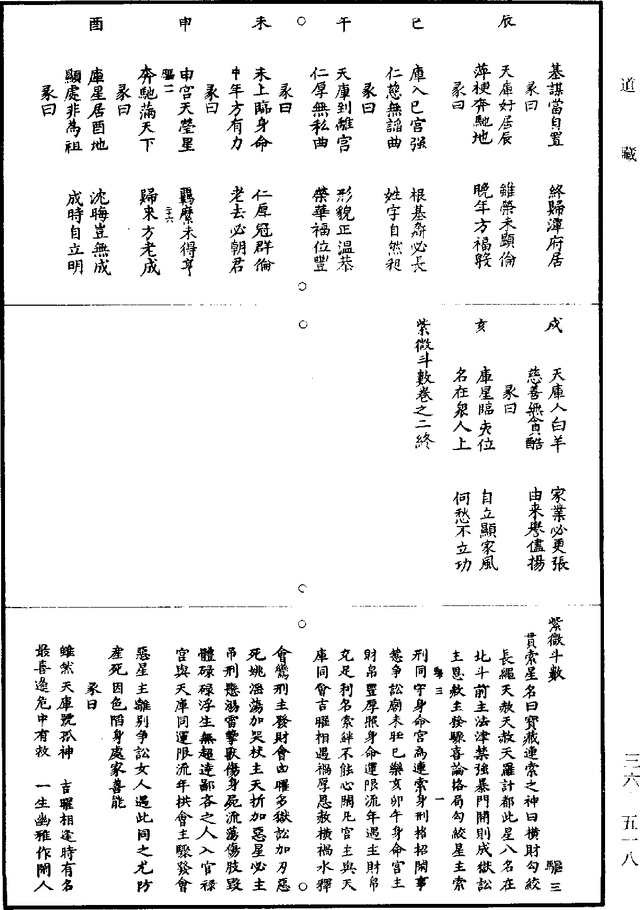 道藏
基謀當自置　終歸潭府居
彖曰
辰　天庫好居辰　雖榮未顯倫
萍梗奔馳地　晚年方福穀
彖曰
巳　庫入巳宮强　根基齊必長
仁慈無謟曲　姓字自然昶
彖曰
午　天庫到離宮　形貌正溫恭
仁厚無私曲　榮華福位豐
彖曰
未　未上臨身命　仁厚冠群倫
中年方有力　老去必朝君
彖曰
申　申宮天瑩星　羈縻未得亨
驅二　二六
奔馳滿天下　歸來方老成
彖曰
酉　庫星居酉地　沈晦豈無成
顯處非為祖　成時自立明
彖曰
戍　天庫入白羊　家業必更張
慈善無貪酷　由来譽儘揚
彖曰
亥　庫星臨亥位　自立顯家風
名在衆人上　何愁不立功
紫微斗數卷之二終
紫微斗數　驅三
貫索星名曰寶藏連索之神曰橫財勾絞
長繩天赦天赦天羅計都此星八名在
北斗前主法津禁強暴門開則成獄訟
主恩赦主發驟喜論格局勾絞星主索
驅三　一
刑同守身命宮為連索身刑指招閑事
惹争訟廟未旺巳樂亥卯午身命宮主
財帛豐厚照身命運限流年遇主財帛
充足利名索絆不能心閑兄宮主與天
庫同會吉曜相遇禍厚恩赦橫禍水釋
會鸞刑主發財會凶曜多獄訟加刃惡
死姚滛蕩加哭杖主天折加惡星必主
吊刑懸溺雷擊獸傷身屍流蕩傷肢毀
體碌碌浮生無超達鄙吝之人入官祿
宮與天庫同運限流年拱會主驟發會
惡星主離別争訟女人遇此同之尤防
產死因色陷身處家善能
彖曰
雖然天庫號孤神　吉曜相逢時有名
最喜逢危中有救　一生幽雅作閑人
三六　五一八